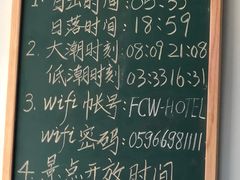 1. 日出时刻: 05:35
日落时刻: 18:59
2. 大潮时刻: 08:09 21:08
低潮时刻: 03:33 16:31
3. wifi 帐号: FCW-HOTEL
wifi 密码: 059669811111
4. 景点开放时间